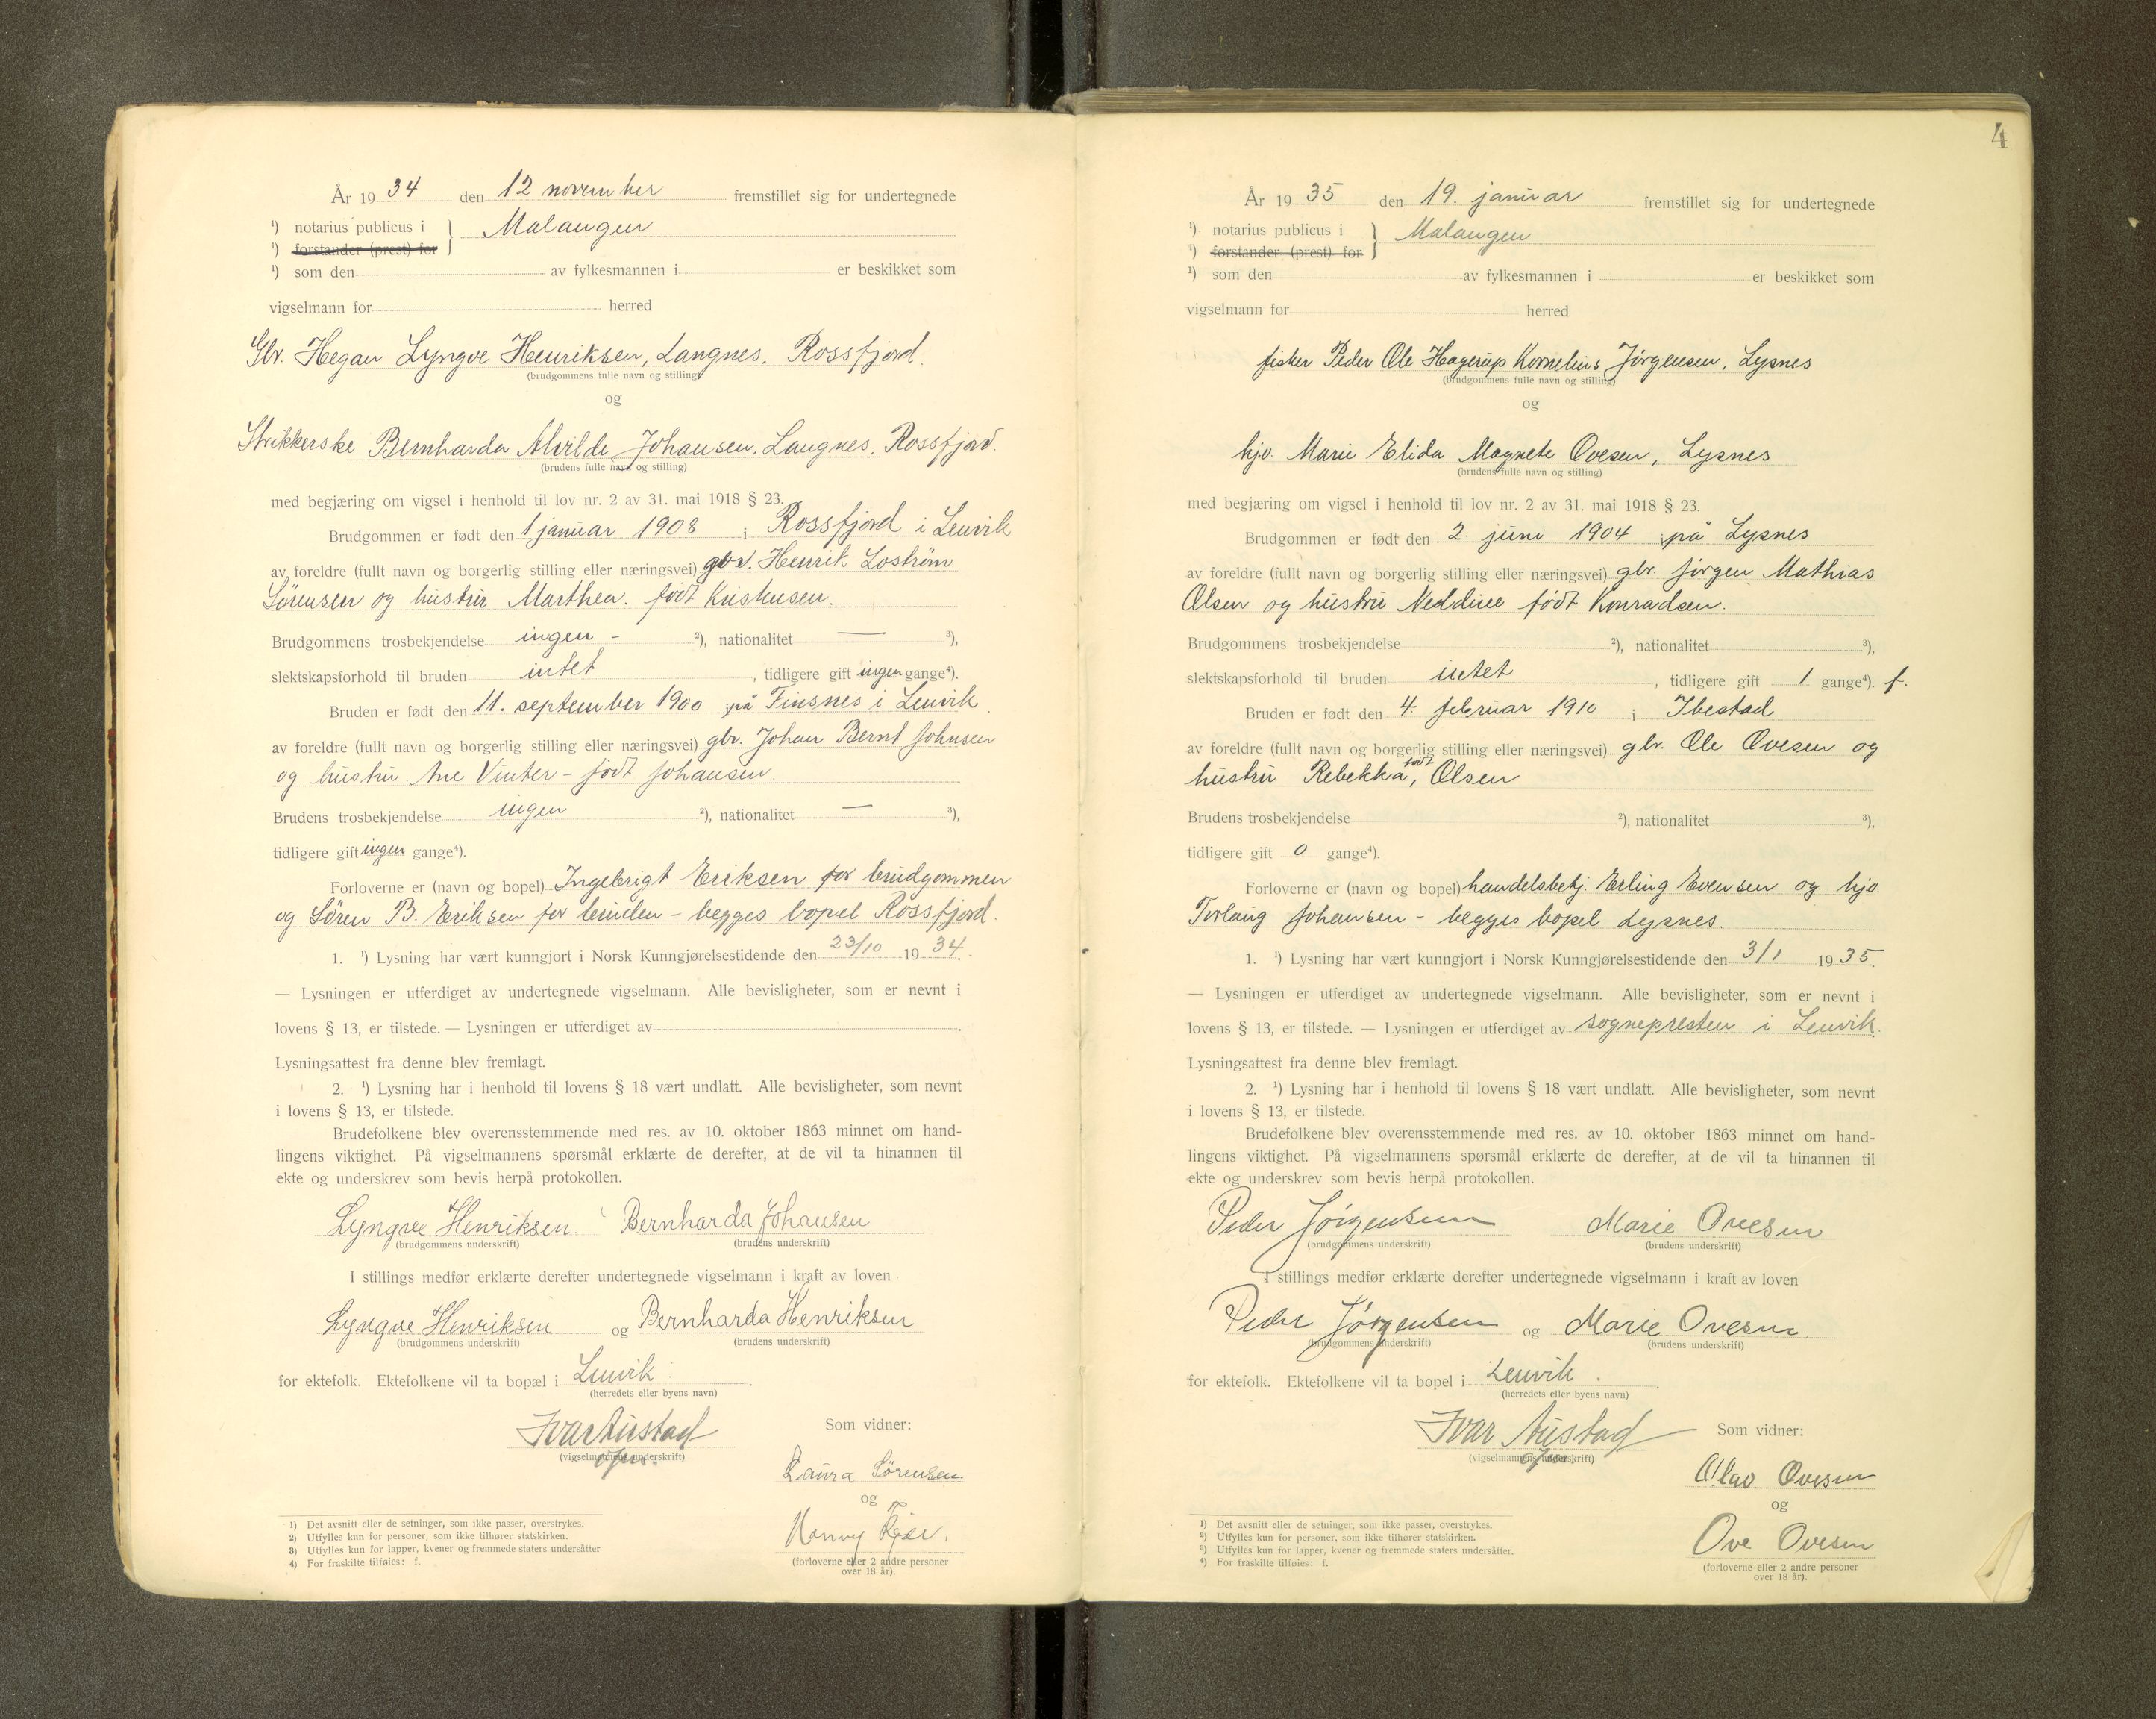 År 1934 den 12 november fremstillet sig for undertegnede
¹) notarius publicus i } Malangen
¹) forstander (prest) for
¹) som den av fylkesmannen i er beskikket som
vigselmann for herred
Gbr. Hegan Lyngve Henriksen, Langnes, Rossfjord.
(brudgommens fulle navn og stilling)
og
Strikkerske Bernharda Alvilde Johansen, Langnes, Rossfjord.
(brudens fulle navn og stilling)
med begjæring om vigsel i henhold til lov nr. 2 av 31. mai 1918 § 23.
Brudgommen er født den 1 januar 1908 i Rossfjord i Lenvik
av foreldre (fullt navn og borgerlig stilling eller næringsvei) gbr. Henrik Lostrøm
Sørensen og hustru Marthea. født Kristensen.
Brudgommens trosbekjendelse ingen - ²), nationalitet — ³),
slektskapsforhold til bruden intet, tidligere gift ingen gange⁴).
Bruden er født den 11. september 1900 på Finsnes i Lenvik.
av foreldre (fullt navn og borgerlig stilling eller næringsvei) gbr. Johan Bernt Johnsen
og hustru Ane Vinter - født Johansen.
Brudens trosbekjendelse ingen ²), nationalitet — ³),
tidligere gift ingen gange⁴).
Forloverne er (navn og bopel) Ingebrigt Eriksen for brudgommen
og Søren B. Eriksen for bruden - begges bopel Rossfjord.
1. ¹) Lysning har vært kunngjort i Norsk Kunngjørelsestidende den 23/10 1934.
— Lysningen er utferdiget av undertegnede vigselmann. Alle bevisligheter, som er nevnt i
lovens § 13, er tilstede. — Lysningen er utferdiget av .
Lysningsattest fra denne blev fremlagt.
2. ¹) Lysning har i henhold til lovens § 18 vært undlatt. Alle bevisligheter, som nevnt
i lovens § 13, er tilstede.
Brudefolkene blev overensstemmende med res. av 10. oktober 1863 minnet om hand-
lingens viktighet. På vigselmannens spørsmål erklærte de derefter, at de vil ta hinannen til
ekte og underskrev som bevis herpå protokollen.
Lyngve Henriksen. Bernharda Johansen
(brudgommens underskrift) (brudens underskrift)
I stillings medfør erklærte derefter undertegnede vigselmann i kraft av loven
Lyngve Henriksen og Bernharda Henriksen
(brudgommens underskrift) (brudens underskrift)
for ektefolk. Ektefolkene vil ta bopæl i Lenvik.
(herredets eller byens navn)
Ivar Austad
(vigselmannens underskrift)
Som vidner:
Laura Sørensen
og
Nanny
(forloverne eller 2 andre personer
over 18 år).
1) Det avsnitt eller de setninger, som ikke passer, overstrykes.
2) Utfylles kun for personer, som ikke tilhører statskirken.
3) Utfylles kun for lapper, kvener og fremmede staters undersåtter
4) For fraskilte tilføies: f.
4
År 1935 den 19. januar fremstillet sig for undertegnede
¹) notarius publicus i } Malangen
¹) forstander (prest) for
¹) som den av fylkesmannen i er beskikket som
vigselmann for herred
fisker Peder Ole Hagerup Kornelius Jørgensen, Lysnes
(brudgommens fulle navn og stilling)
og
hjv. Marie Elida Magnete Ovesen, Lysnes
(brudens fulle navn og stilling)
med begjæring om vigsel i henhold til lov nr. 2 av 31. mai 1918 § 23.
Brudgommen er født den 2. juni 1904 på Lysnes
av foreldre (fullt navn og borgerlig stilling eller næringsvei) gbr. Jørgen Mathias
Olsen og hustru Neddine født Konradsen.
Brudgommens trosbekjendelse ²), nationalitet ³),
slektskapsforhold til bruden intet, tidligere gift 1 gange⁴). f.
Bruden er født den 4. februar 1910 i Ibestad
av foreldre (fullt navn og borgerlig stilling eller næringsvei) gbr. Ole Ovesen og
hustru Rebekka, født Olsen
Brudens trosbekjendelse ²), nationalitet ³),
tidligere gift 0 gange⁴).
Forloverne er (navn og bopel) handelsbetj. Erling Evensen og hjv.
Torlaug Johansen - begges bopel Lysnes.
1. ¹) Lysning har vært kunngjort i Norsk Kunngjørelsestidende den 3/1 1935.
— Lysningen er utferdiget av undertegnede vigselmann. Alle bevisligheter, som er nevnt i
lovens § 13, er tilstede. — Lysningen er utferdiget av sognepresten i Lenvik.
Lysningsattest fra denne blev fremlagt.
2. ¹) Lysning har i henhold til lovens § 18 vært undlatt. Alle bevisligheter, som nevnt
i lovens § 13, er tilstede.
Brudefolkene blev overensstemmende med res. av 10. oktober 1863 minnet om hand-
lingens viktighet. På vigselmannens spørsmål erklærte de derefter, at de vil ta hinannen til
ekte og underskrev som bevis herpå protokollen.
Peder Jørgensen Marie Ovesen
(brudgommens underskrift) (brudens underskrift)
I stillings medfør erklærte derefter undertegnede vigselmann i kraft av loven
Peder Jørgensen og Marie Ovesen
(brudgommens underskrift) (brudens underskrift)
for ektefolk. Ektefolkene vil ta bopel i Lenvik.
(herredets eller byens navn)
Ivar Austad
(vigselmannens underskrift)
Som vidner:
Olav Ovesen
og
Ove Ovesen
(forloverne eller 2 andre personer
over 18 år).
¹) Det avsnitt eller de setninger, som ikke passer, overstrykes.
²) Utfylles kun for personer, som ikke tilhører statskirken.
³) Utfylles kun for lapper, kvener og fremmede staters undersåtter.
⁴) For fraskilte tilføies: f.